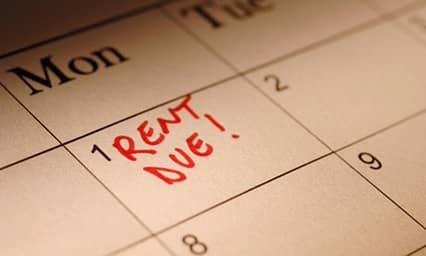 Mon Tue
1 RENT 2
DUE!
8 9